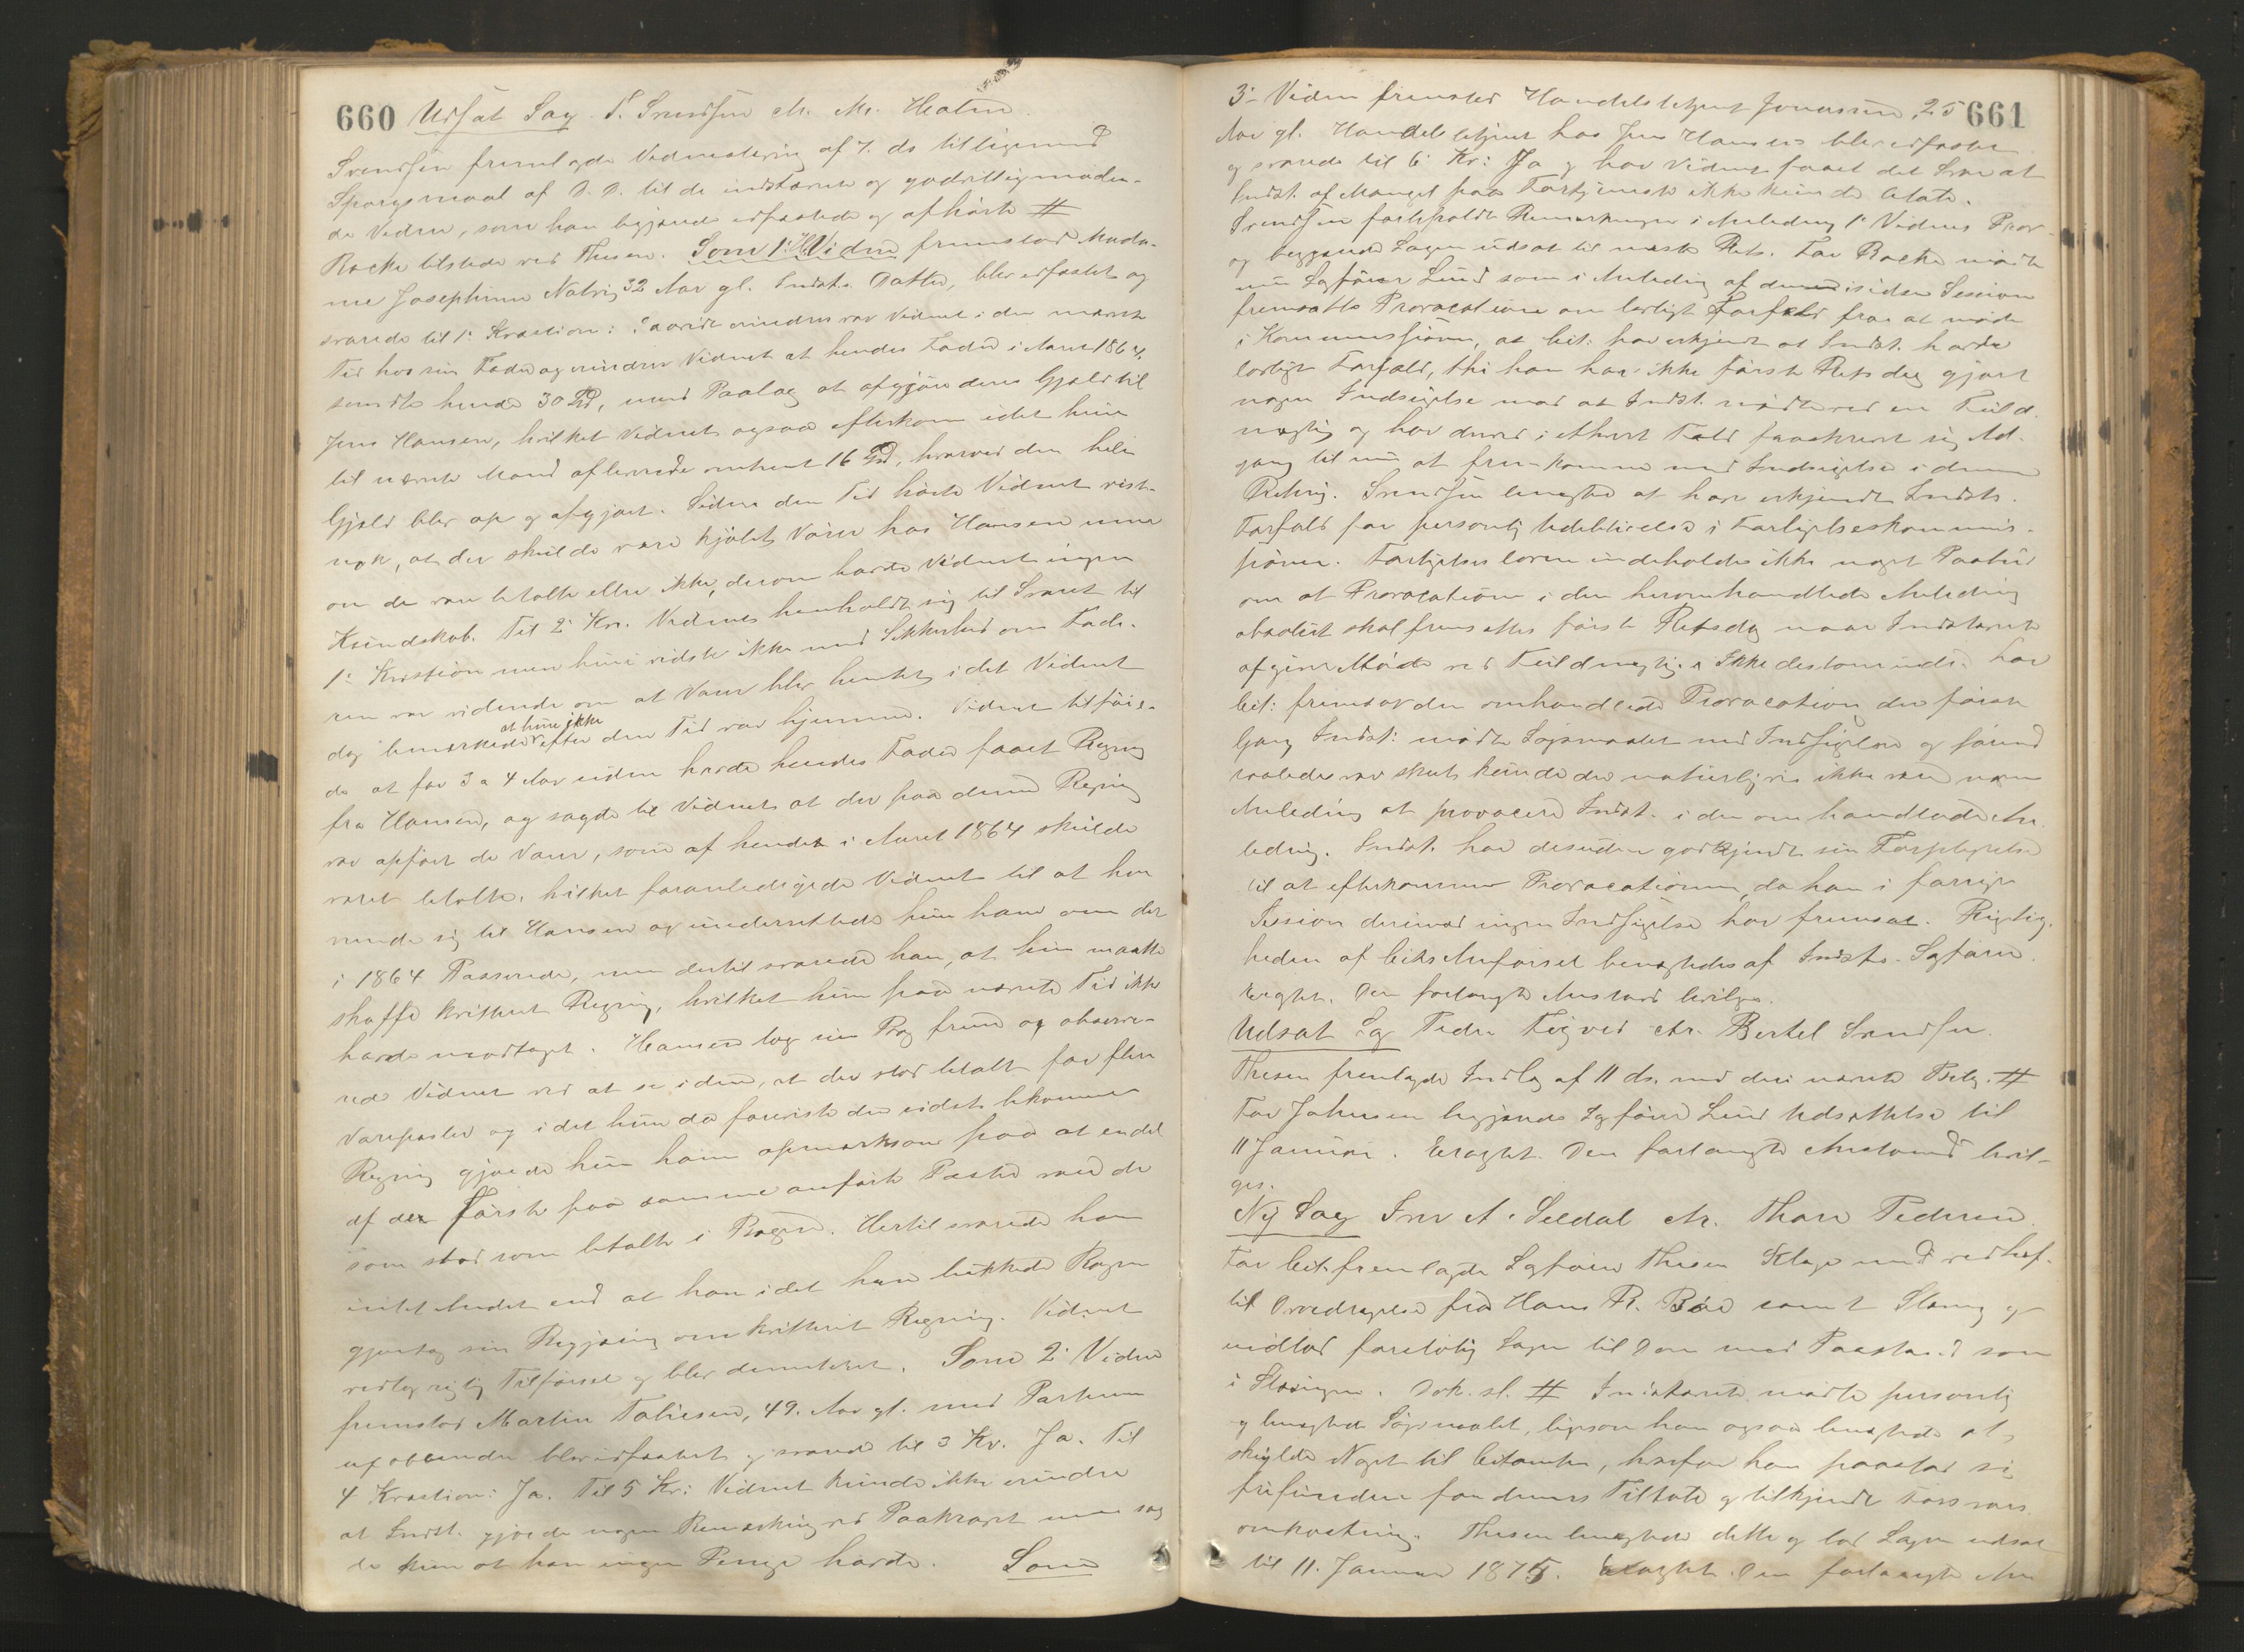 660 Udsat Sag S. Svendsen
Svendsen fremlagde Vidnestævning af 7. ds tilligemed
Spørgsmaal af D. D. til de indstævnte og godvilligmøden-
de Vidner, som han begjærede edfæstede og afhørte #
Bocke tilstede ved Thesen. Som 1: Vidne fremstod Mada-
me Josephine 32 Aar gl. Indst.s Datter, blev edfæstet og
svarede til 1: Kvæstion: Saavidt erindres var Vidnet i den nævnte
Tid hos sin Fader og erindrer Vidnet at hendes Fader i Aaret 1864
sendte hende 30 Spd, med Paalæg at afgjøre dens Gjæld til
Jens Hansen, hvilket Vidnet ogsaa efterkom idet hun
til nævnte Mand afleverede omtrent 16 Spd, hvorved den hele
Gjæld blev op og afgjort. Siden den Tid hørte Vidnet vist-
nok, at der skulde være kjøbt Varer hos Hansen men
om de vare betalte eller ikke, derom havde Vidnet ingen
Kundskab. Til 2: Kv. Vidnet henholdt sig til Svaret til
1: Kvæstion men hun vidste ikke med Sikkerhed om Fade-
ren var vidende om at Varer blev hentet, idet Vidnet
dog bemærkede at hun ikke efter den Tid var hjemme. Vidnet tilføie-
de at for 3 a 4 Aar siden havde hendes Fader faaet Regning
fra Hansen, og sagde til Vidnet at der paa denne Regning
var opført de Varer, som af hende i Aaret 1864 skulde
været betalte, hvilket foranledigede Vidnet til at hen-
vende sig til Hansen og underrettede hun ham om det
i 1864 Passerede, men dertil svarede han, at hun maatte
skaffe kvitteret Regning, hvilket hun paa nævnte Tid ikke
havde modtaget. Hansen tog sin Bog frem og observe-
rede Vidnet ved at se i den, at der stod betalt for flere
Vareposter og idet hun da foreviste den sidst bekomne
Regning gjorde hun ham opmærksom paa at endel
af de første paa samme anførte Poster vare de
som stod som betalte i Bogen. Hertil svarede han
intet Andet end at han idet han lukkede Bogen
gjentog sin Begjæring om kvitteret Regning. Vidnet
vedtog rigtig Tilførsel og blev demitteret. Som 2: Vidne
fremstod Martin Tobiesen, 49. Aar gl. med Parterne
blev edfæstet og svarede til 3 Kv. Ja. Til
4 Kvæstion: Ja. Til 5 Kv: Vidnet kunde ikke erindre
at Indst. gjorde nogen Bemærkning ved Paakravet men sag-
de kun at han ingen Penge havde. Som
661
3:- Vidne fremstod Handelsbetjent Jonassen, 25
Aar gl. Handelsbetjent hos Jens Hansen blev edfæstet
og svarede til 6: Kv: Ja og har Vidnet faaet det Svar at
Indst. af Mangel paa Fortjeneste ikke kunde betale.
Svendsen forbeholdt Bemærkninger i Anledning 1: Vidnes Prov
og begjærede Sagen udsat til næste Rets. For Bocke mødte
nu Sagfører Lund som i Anledning af den i sidste Session
fremsatte Provocation om lovligt Forfald fra at møde
i Kommissionen, at Cit: har erkjendt at Indst. havde
lovligt Forfald, thi han har ikke første Retsdag gjort
nogen Indsigelse mod at Indst. mødte ved en Fuld-
mægtig og har derved i Fald fraskrevet sig Ad-
gang til nu at fremkomme med Indsigelse i denne
Retning. Svendsen benegtede at have erkjendt Indsts.
Forfald for personlig Udeblivelse i Forligelseskommis-
sionen. Forligelsesloven indeholder ikke noget Paabud
om at Provocation i den heromhandlede Anledning
absolut skal fremsættes første Retsdag naar Indstævnte
afgiver Møde ved Fuldmægtig. Ikke destomindre har
Cit: fremsat den omhandlede Provocation den første
Gang Indst: mødte Søgsmaalet med Indsigelse og førend
saaledes var skeet, kunde der naturligvis ikke være nogen
Anledning at provocere Indst. i den omhandlede An-
ledning. Indst. har desuden godkjendt sin Forpligtelse
til at efterkomme Provocationen, da han i forrige
Session derimod ingen Indsigelse har fremsat. Rigtig-
heden af Cits Anførsel benegtedes af Indsts. Sagfører.
Eragtet. Den forlangte Anstand bevilges.
Udsat Sag Peder Tegved Bertel Svendsen.
Thesen fremlagde Indlæg af 11 ds. med deri nævnte Bilag. #
For Johnsen begjærede Sagfører Lund Udsættelse til
11 Januar. Eragtet. Den forlangte Anstand bevil-
ges.
Ny Sag Iver A. Seldal Thore Pedersen.
For Cit. fremlagde Sagfører Thesen Klage med vedhef-
tet Overdragelse fra Hans R. Bøe samt Stævning og
indlod foreløbig Sagen til Dom med Paastand som
i Stævningen. Dok. sl. # Indstævnte mødte personlig
og benegtede Søgsmaalet, ligesom han ogsaa benegtede at
skylde Noget til Citanten, hvorfor han paastod sig
frifunden for dennes Tiltale og tilkjendt Forsvars-
omkostning. Thesen benegtede dette og lod Sagen udsat
til 11. Januar 1875. Eragtet. Den forlangte An